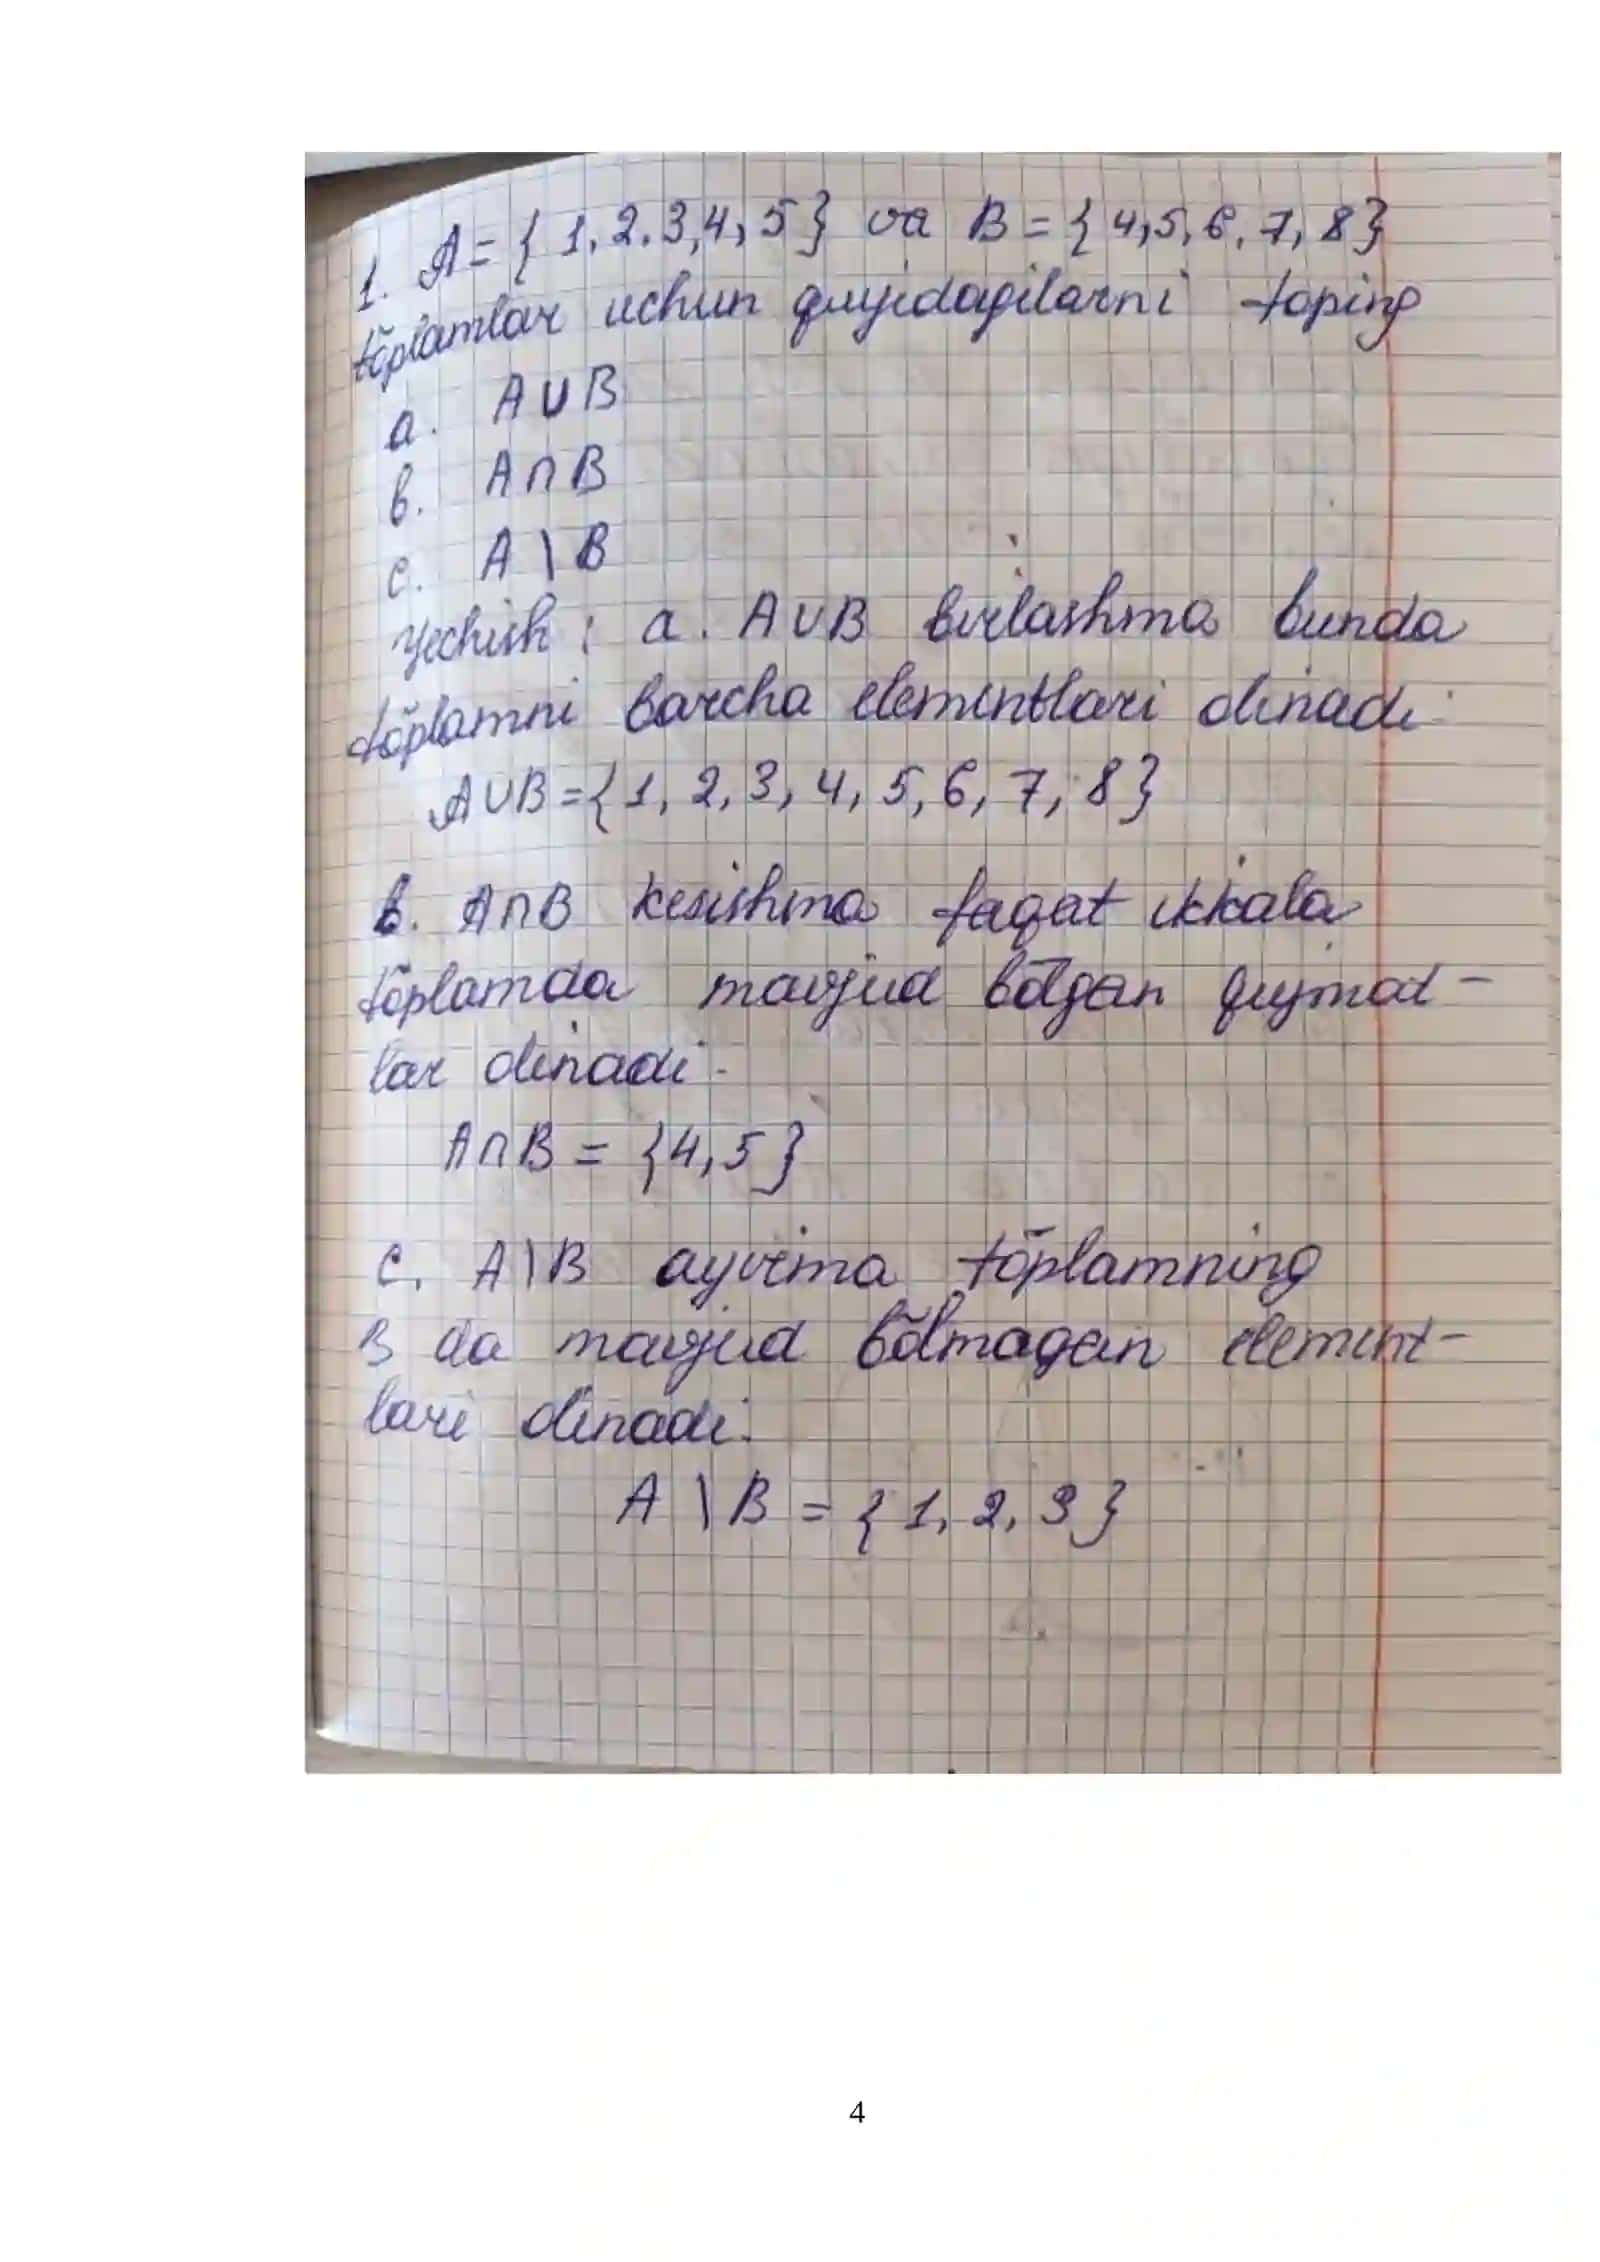 1. A = { 1, 2, 3, 4, 5 } va B = { 4, 5, 6, 7, 8 }
tõplamlar uchun quyidagilarni toping
a. A ∪ B
b. A ∩ B
c. A \ B
Yechish : a. A∪B birlashma bunda
tõplamni barcha elementlari olinadi.
A∪B = { 1, 2, 3, 4, 5, 6, 7, 8 }
b. A∩B kesishma faqat ikkala
tõplamda mavjud bõlgan qiymat-
lar olinadi.
A∩B = {4, 5}
c. A\B ayirma tõplamning
B da mavjud bõlmagan element-
lari olinadi.
A \ B = { 1, 2, 3 }
4